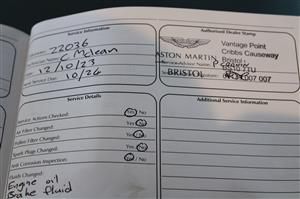 Service Information
22036
C Mclean
12/10/23
Service Due Date: 10/24
Authorised Dealer Stamp
ASTON MARTIN
Vantage Point
Cribbs Causeway
Bristol
BRISTOL
007 007
Service Details
Service Actions Checked: Yes No
Air Filter Changed: Yes No
Pollen Filter Changed: Yes No
Spark Plugs Changed: Yes No
Anti Corrosion Inspection: Yes No
Fluids Changed:
Engine oil
Brake fluid
Additional Service Information